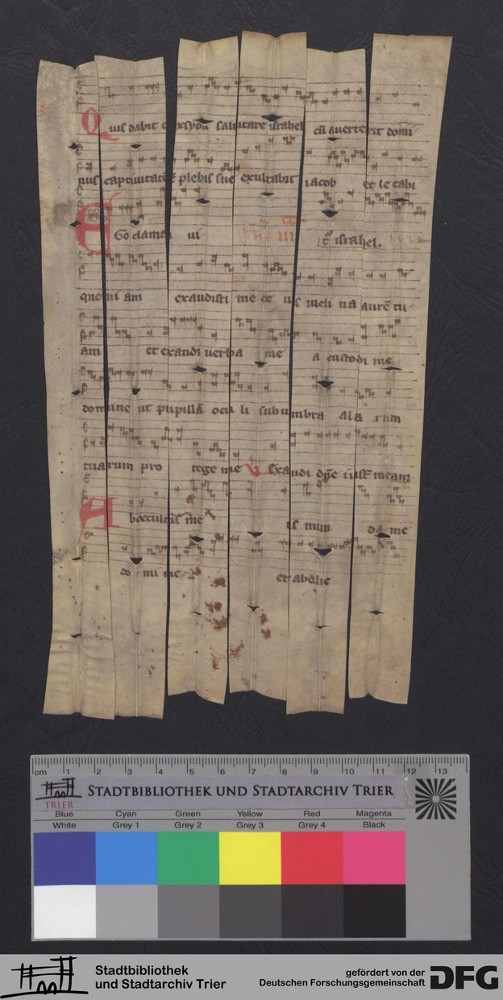 Quis dabit exsyon salutare israhel cū averterit domi
nus captivitatē plebis sue exultabit iacob et letabi
tr̄ israhel.
Ego clamavi
quoniam exaudisti me deus inclina aurē tu
am et exaudi verba mea custodi me
domine ut pupillā oculi sub umbra alarum
tuarum protege me V Exaudi dn̄e iust̄ meam
Ab occultis me is munda me
domine et ab alie
cm 1 2 3 4 5 6 7 8 9 10 11 12 13
TRIER
STADTBIBLIOTHEK UND STADTARCHIV TRIER
Blue Cyan Green Yellow Red Magenta
White Grey 1 Grey 2 Grey 3 Grey 4 Black
Stadtbibliothek
und Stadtarchiv Trier
gefördert von der
Deutschen Forschungsgemeinschaft
DFG